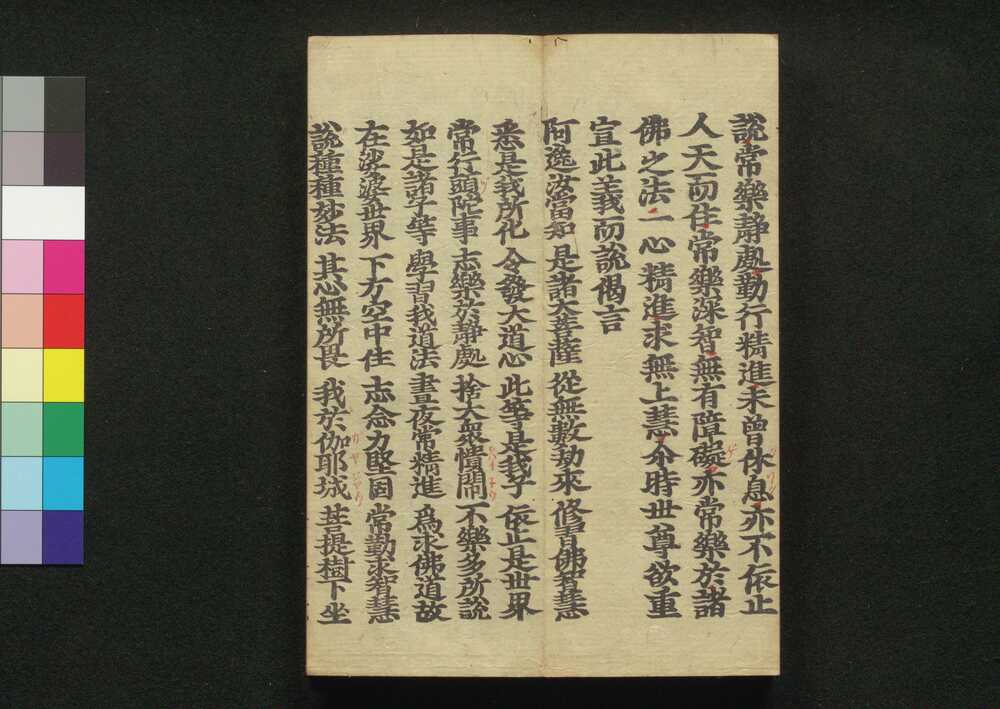 說常樂靜處勤行精進未曾休息亦不依止
人天而住常樂深智無有障礙亦常樂於諸
佛之法一心精進求無上慧尒時世尊欲重
宣此義而說偈言
阿逸汝當知 是諸大菩薩 從無數劫來 修習佛智慧
悉是我所化 令發大道心 此等是我子 依止是世界
常行頭陀事 志樂於靜處 捨大衆憒閙 不樂多所說
如是諸子等 學習我道法 晝夜常精進 爲求佛道故
在娑婆世界 下方空中住 志念力堅固 常勤求智慧
說種種妙法 其心無所畏 我於伽耶城 菩提樹下坐